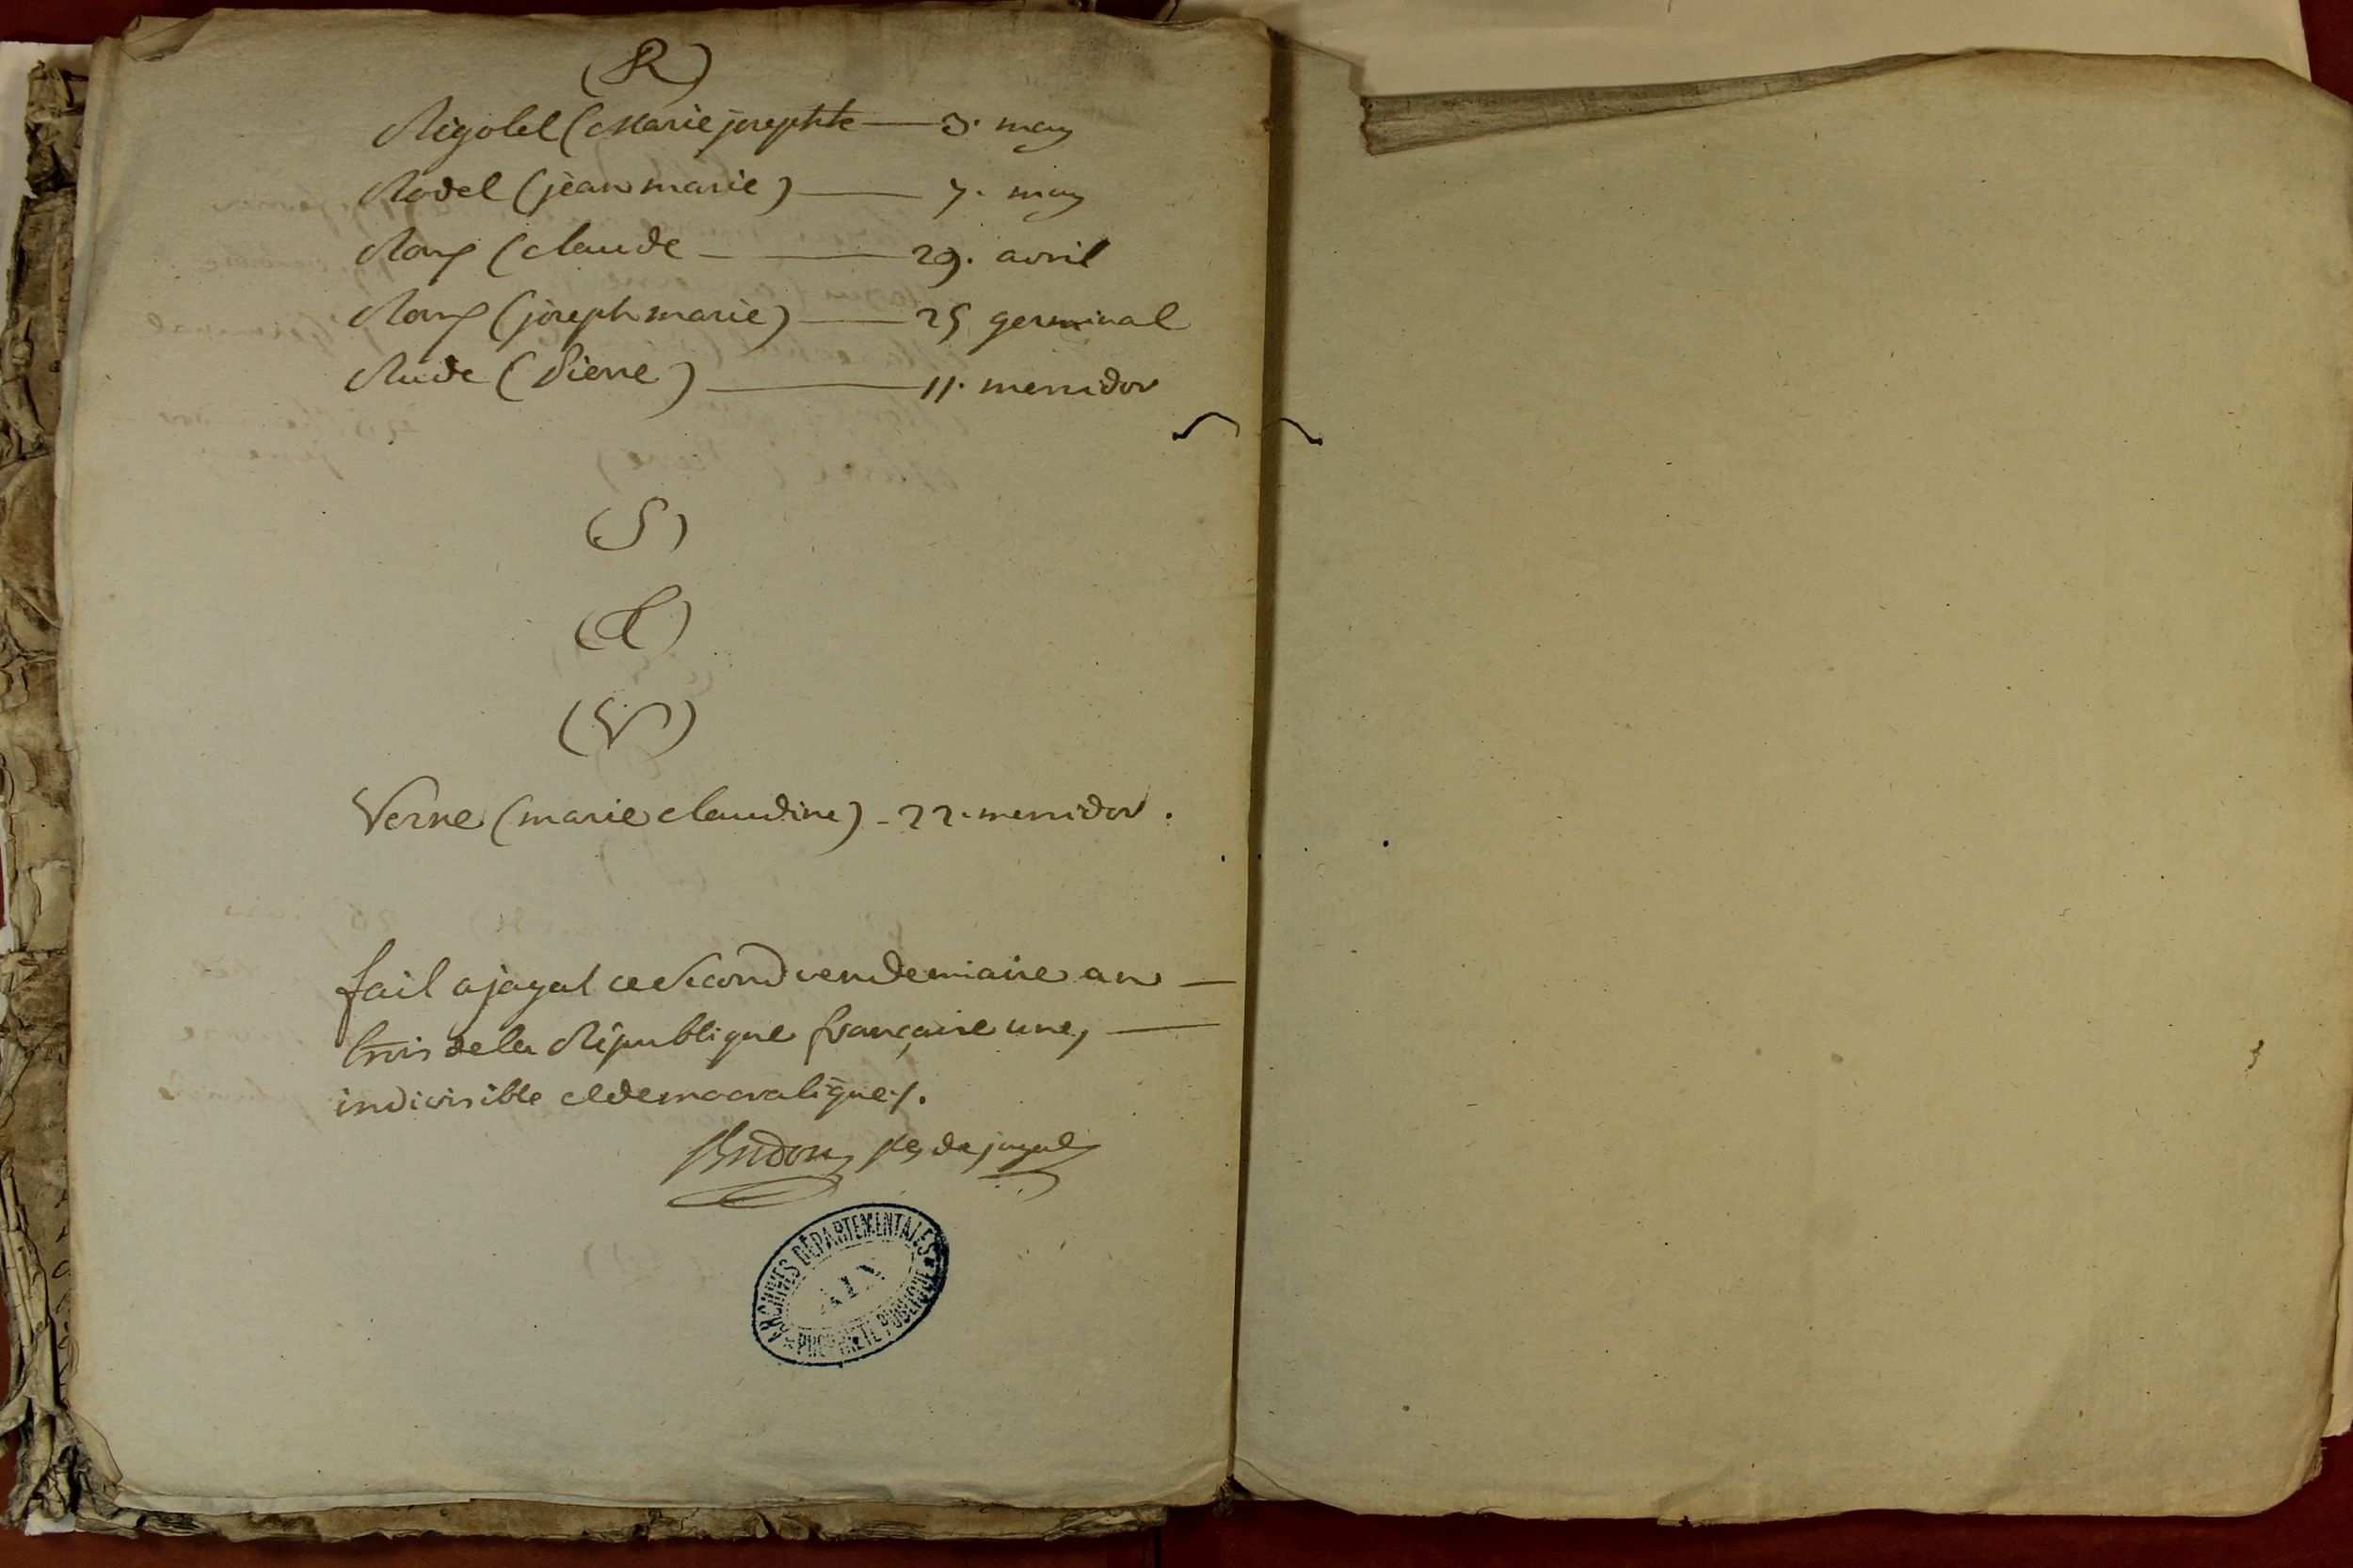 (R)
Rigolet (Marie josephte — 3. may
Rodet (jean marie) — 7. may
Roux (claude — 29. avril
Roux (joseph marie) — 25 germinal
Rude (Pierre) — 11. messidor
(S)
(T)
(V)
Verne (marie claudine) - 22. messidor.
fait a jayat ce second vendemiaire an —
trois de la République française une, —
indivisible et democratique ./.
de jayat
ARCHIVES DÉPARTEMENTALES
AIN
PROPRIÉTÉ PUBLIQUE